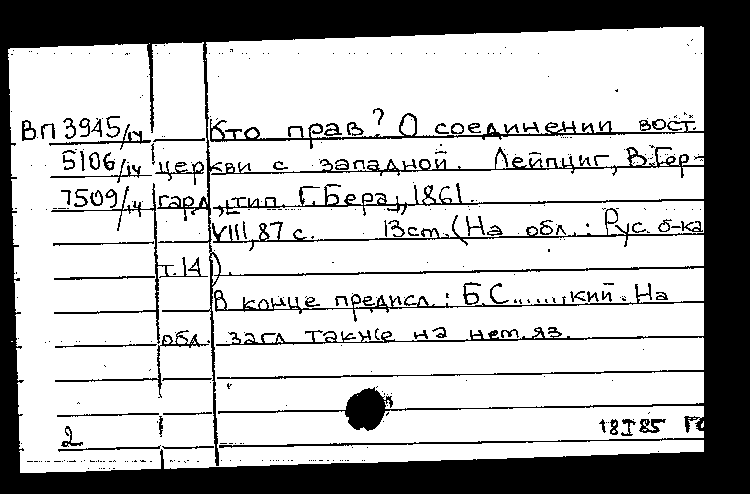 ВП 3945/14 Кто прав? О соединении вост.
5106/14 церкви с западной. Лейпциг, В. Гер-
7509/14 гард, [тип. Г. Бера], 1861.
VIII, 87 с. 13 см. (На обл.: Рус. б-ка
т. 14).
В конце предисл.: Б.С......,кий. На
обл. загл также на нем. яз.
2
18 I 85 ГС